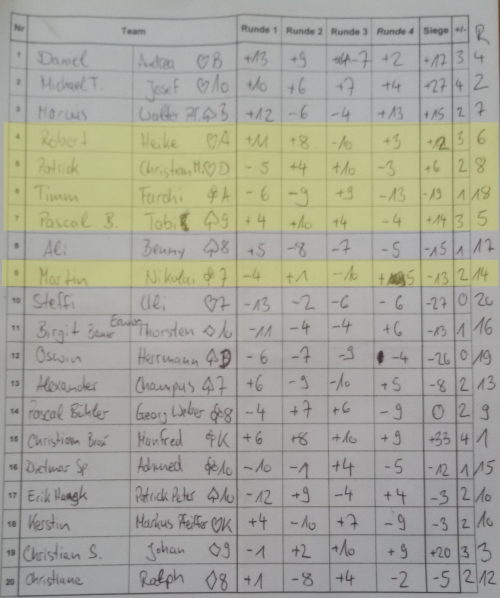 Nr Team Runde 1 Runde 2 Runde 3 Runde 4 Siege +/- R
1 Daniel Andrea ♡B +13 +9 -7 +2 +17 3 4
2 Michael T. Josef ♡10 +10 +6 +7 +4 +27 4 2
3 Marcus Walter Pf. ♤3 +12 -6 -4 +13 +15 2 7
4 Robert Heike ♡A +11 +8 -10 +3 +12 3 6
5 Patrick Christian M.S ♡D -5 +4 +10 -3 +6 2 8
6 Timm Farchi ♧A -6 -9 +9 -13 -19 1 18
7 Pascal B. Tobi ♤9 +4 +10 +4 -4 +14 3 5
8 Ali Benny ♤8 +5 -8 -7 -5 -15 1 17
9 Martin Nikolai ♧7 -4 +1 -10 +5 -13 2 14
10 Steffi Uli ♡7 -13 -2 -6 -6 -27 0 20
11 Birgit Thorsten ♢10 -11 -4 -4 +6 -13 1 16
12 Oswin Herrmann ♤D -6 -7 -9 -4 -26 0 19
13 Alexander Champus ♤7 +6 -9 -10 +5 -8 2 13
14 Pascal Bühler Georg Weber ♧8 -4 +7 +6 -9 0 2 9
15 Christian Manfred ♧K +6 +8 +10 +9 +33 4 1
16 Dietmar Sp. Achmed ♧10 -10 -1 +4 -5 -12 1 15
17 Erik Patrick Peter ♤10 -12 +9 -4 +4 -3 2 10
18 Kerstin Markus Pfeiffer ♡K +4 -10 +7 -9 -3 2 10
19 Christian S. Johan ♢9 -1 +2 +10 +9 +20 3 3
20 Christiane Ralph ♢8 +1 -8 +4 -2 -5 2 12